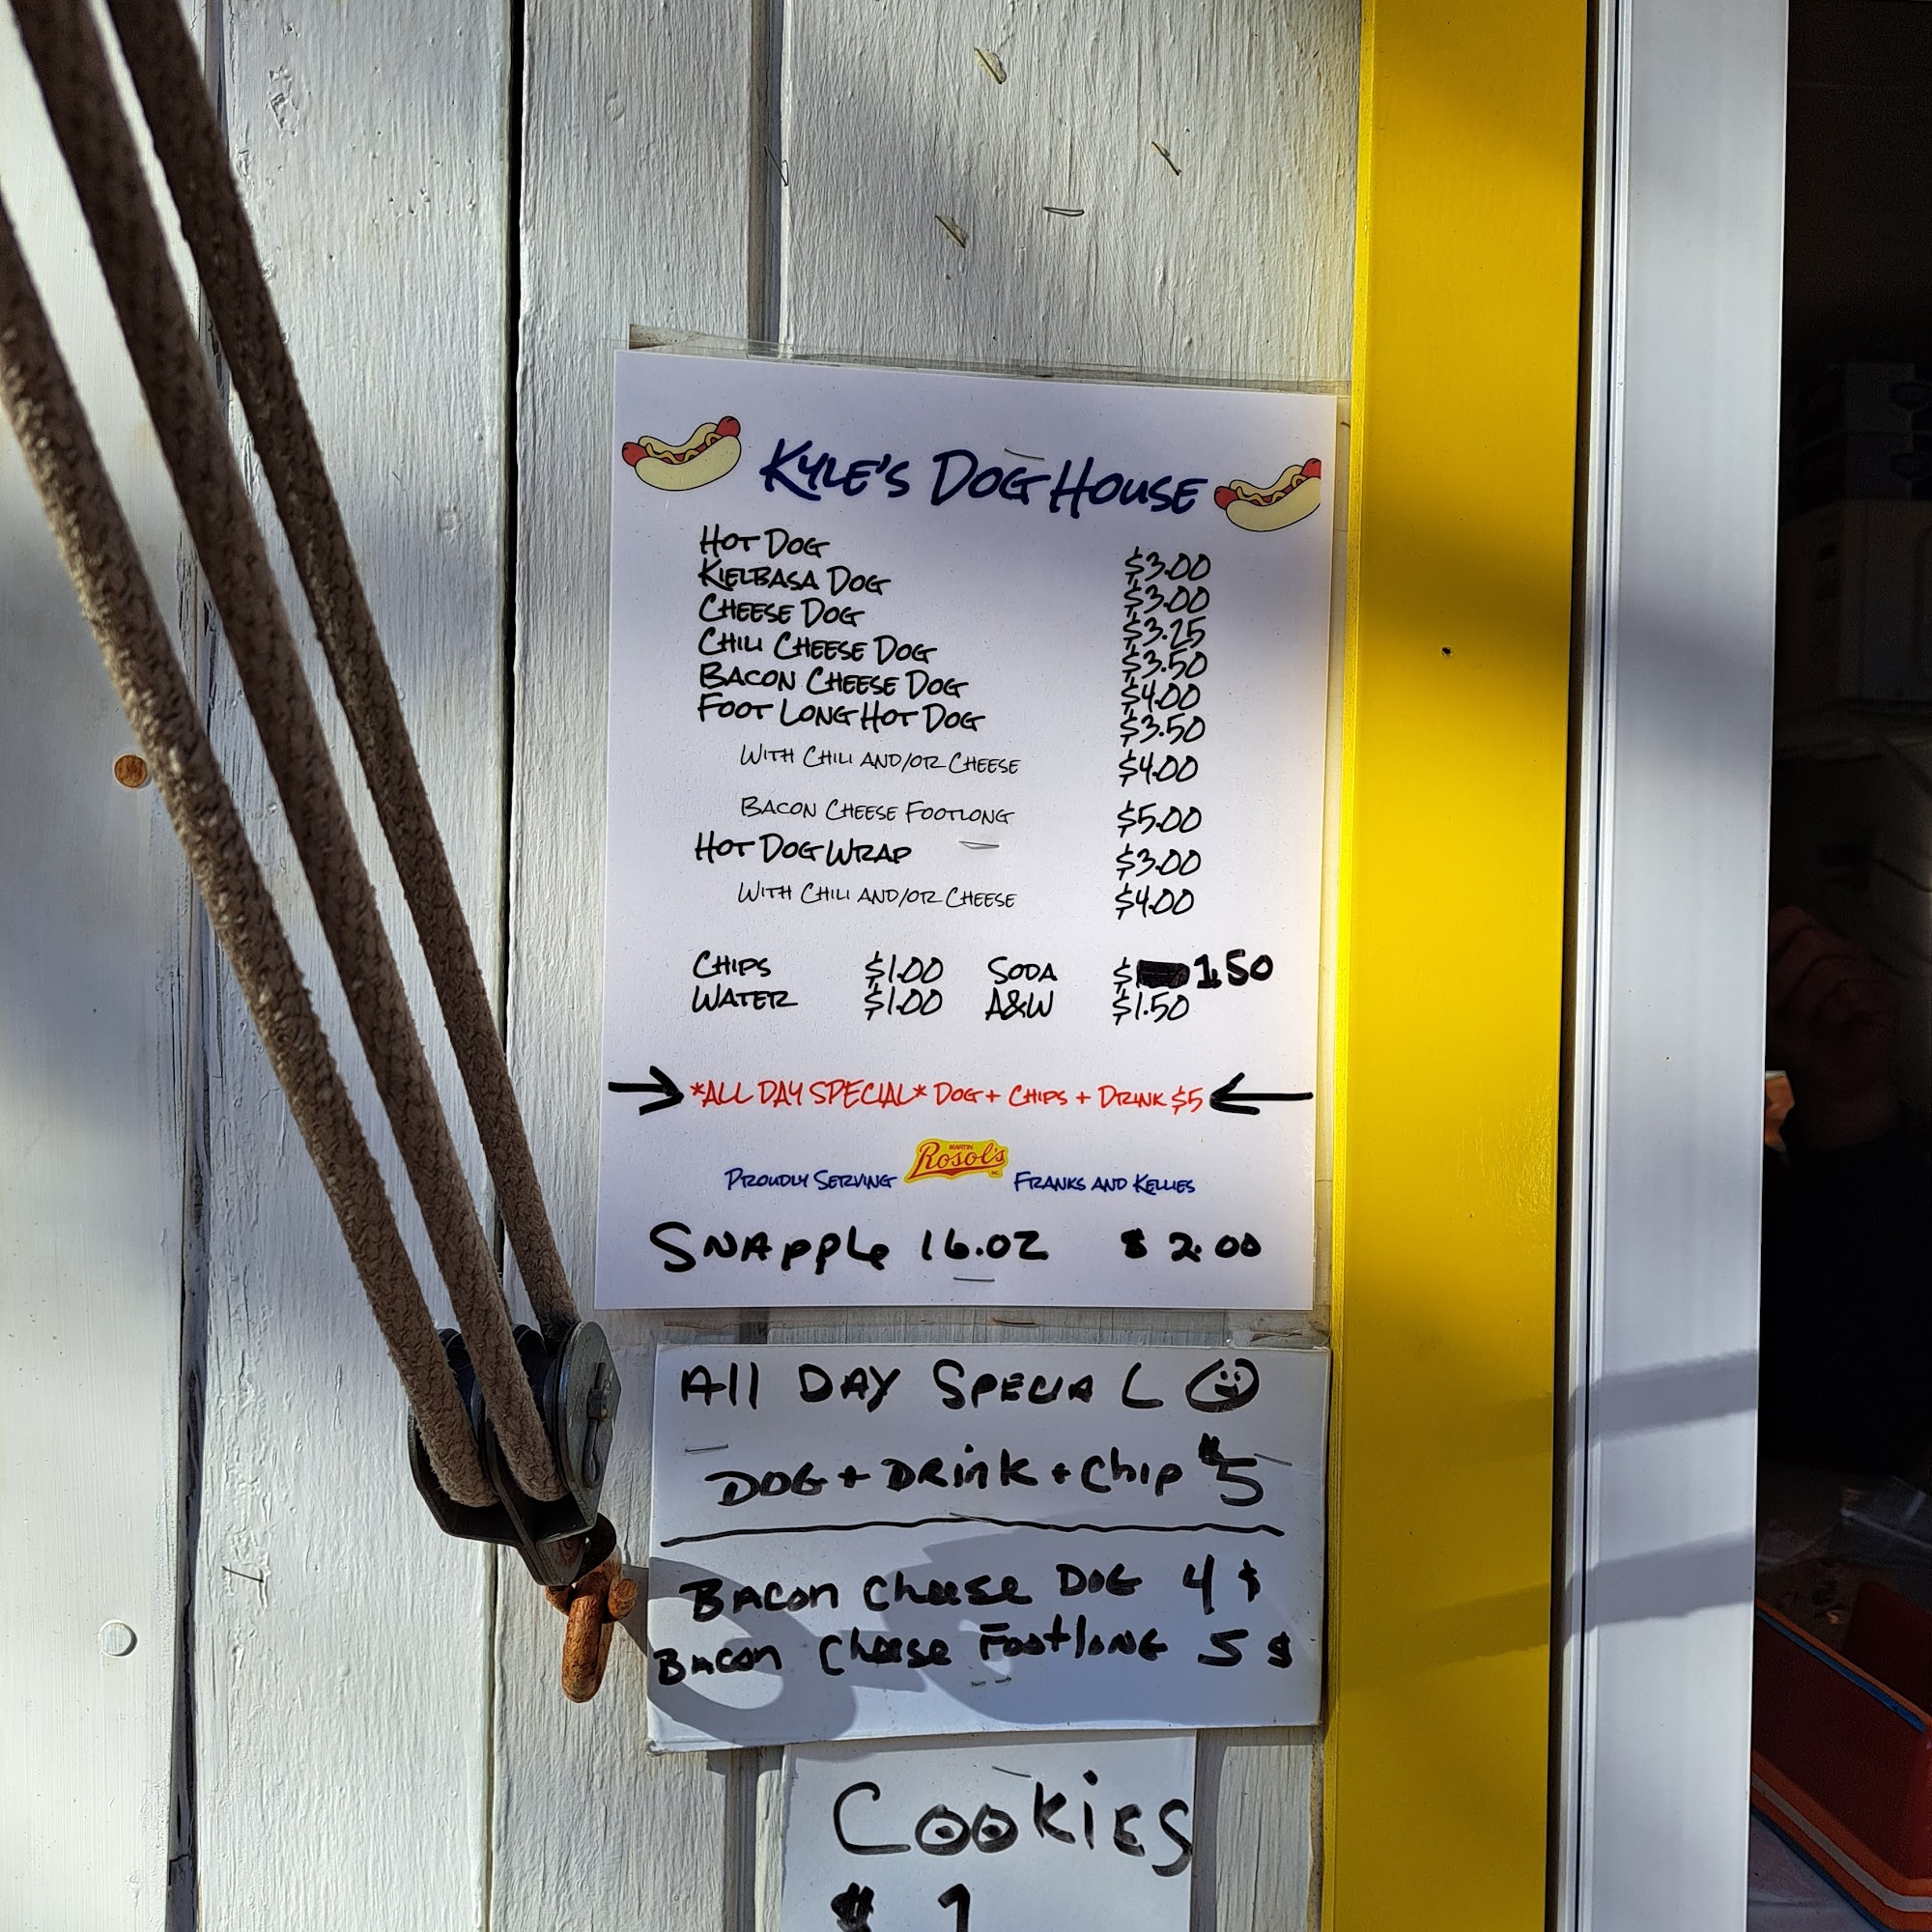 KYLE'S DOG HOUSE
HOT DOG $3.00
KIELBASA DOG $3.00
CHEESE DOG $3.25
CHILI CHEESE DOG $3.50
BACON CHEESE DOG $4.00
FOOT LONG HOT DOG $3.50
WITH CHILI AND/OR CHEESE $4.00
BACON CHEESE FOOTLONG $5.00
HOT DOG WRAP $3.00
WITH CHILI AND/OR CHEESE $4.00
CHIPS $1.00 SODA $ 1.50
WATER $1.00 A&W $1.50
*ALL DAY SPECIAL* DOG + CHIPS + DRINK $5
PROUDLY SERVING MARTIN Rosol's INC. FRANKS AND KELLIES
SNAppLe 16.OZ $ 2.00
All DAY SPECIAL
DOG + DRink + Chip $5
BACON Cheese DOG 4 $
BACON Cheese FootlONG 5 $
COOKiES
$ 1